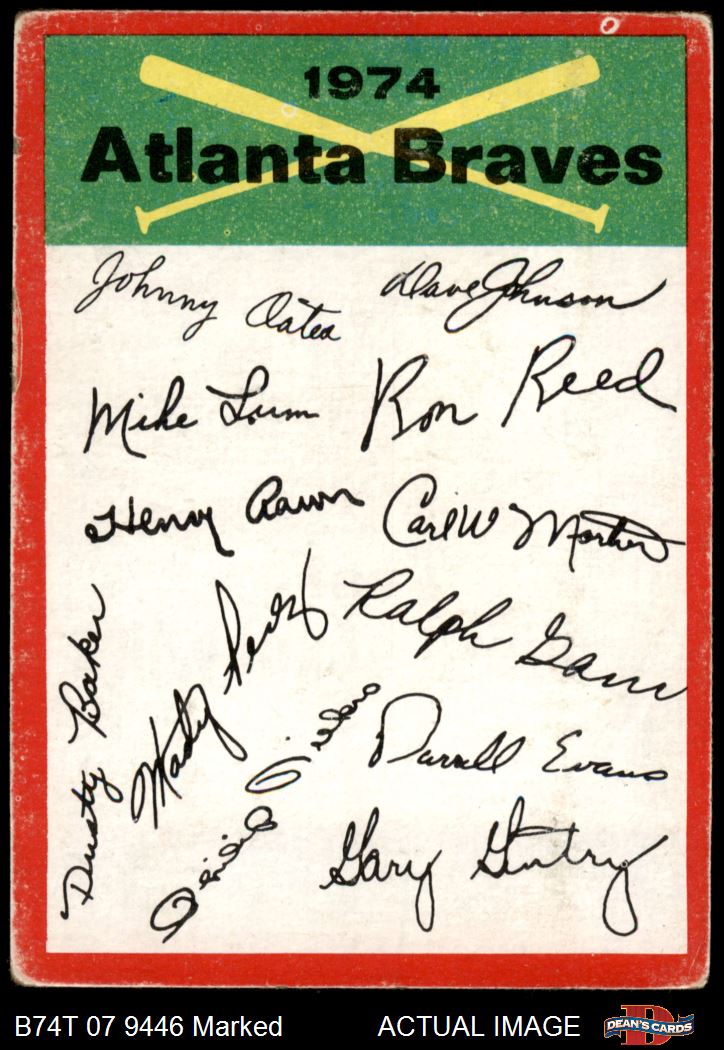 1974
Atlanta Braves
Johnny Oates
Dave Johnson
Mike Lum
Ron Reed
Henry Aaron
Carl W Morton
Marty Perez
Ralph Garr
Dusty Baker
Darrell Evans
Gary Gentry
B74T 07 9446 Marked
ACTUAL IMAGE
D
DEAN'S CARDS